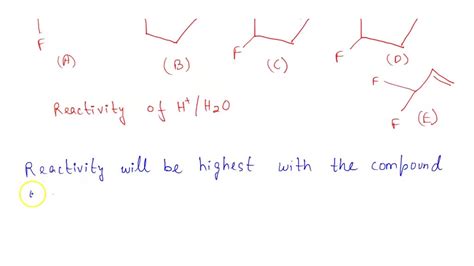 F F F F
(A) (B) (C) (D)
F
F (E)
Reactivity of H⁺/H2O
Reactivity will be highest with the compound
t